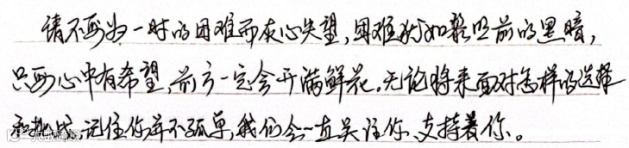 请不要为一时的困难而灰心失望,困难犹如黎明前的黑暗,
只要心中有希望,前方一定会开满鲜花。无论将来面对怎样的选择
和挑战,记住你并不孤单,我们会一直关注你、支持着你。